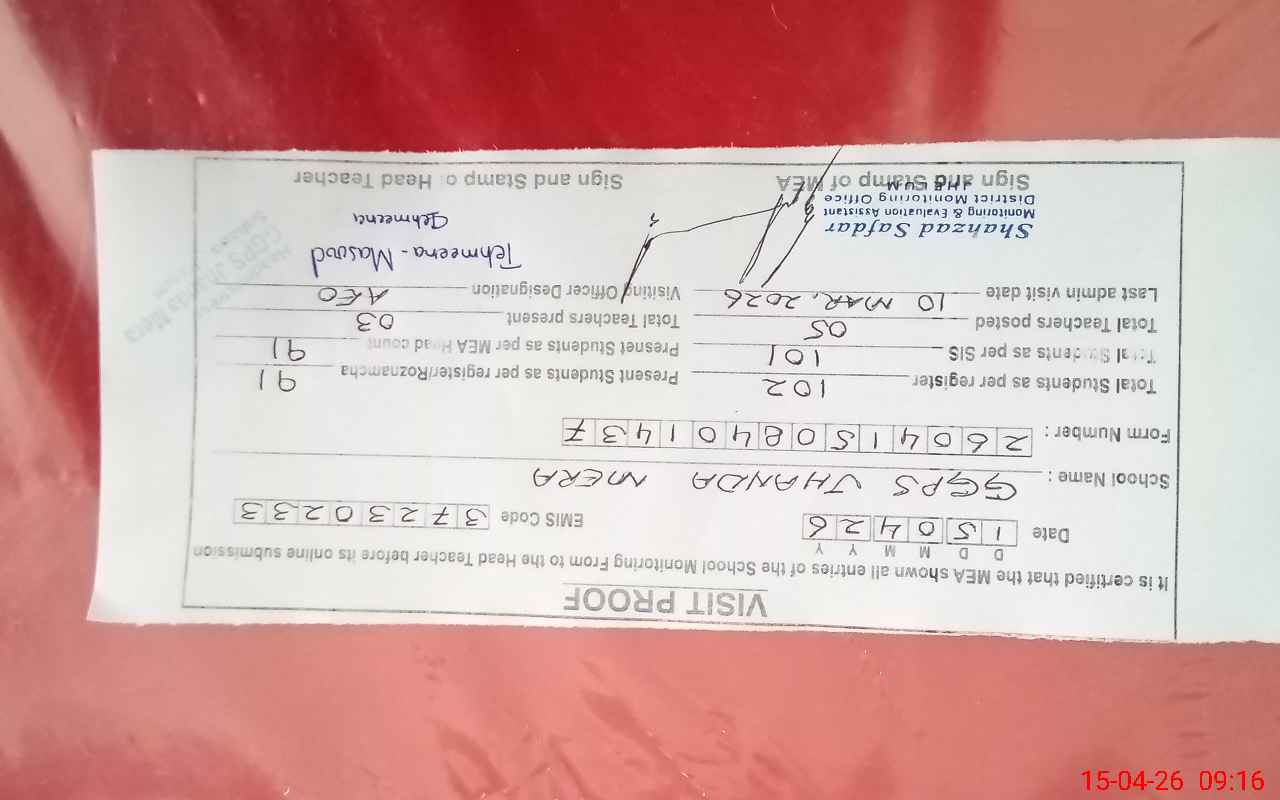 VISIT PROOF
It is certified that the MEA shown all entries of the School Monitoring From to the Head Teacher before its online submission
D D M M Y Y
Date 1 5 0 4 2 6 EMIS Code 3 7 2 3 0 2 3 3
School Name : GGPS JHANDA MERA
Form Number : 2 6 0 4 1 5 0 8 4 0 1 4 3 7
Total Students as per register 102 Present Students as per register/Roznamcha 91
Total Students as per SIS 101 Presnet Students as per MEA Head count 91
Total Teachers posted 05 Total Teachers present 03
Last admin visit date 10 MAR, 2026 Visiting Officer Designation AEO
Shahzad Safdar Tehmeena - Masood
Monitoring & Evaluation Assistant Tehmeena
District Monitoring Office
JHELUM
Sign and Stamp of MEA Sign and Stamp of Head Teacher
GGPS Jhanda Mera
15-04-26 09:16